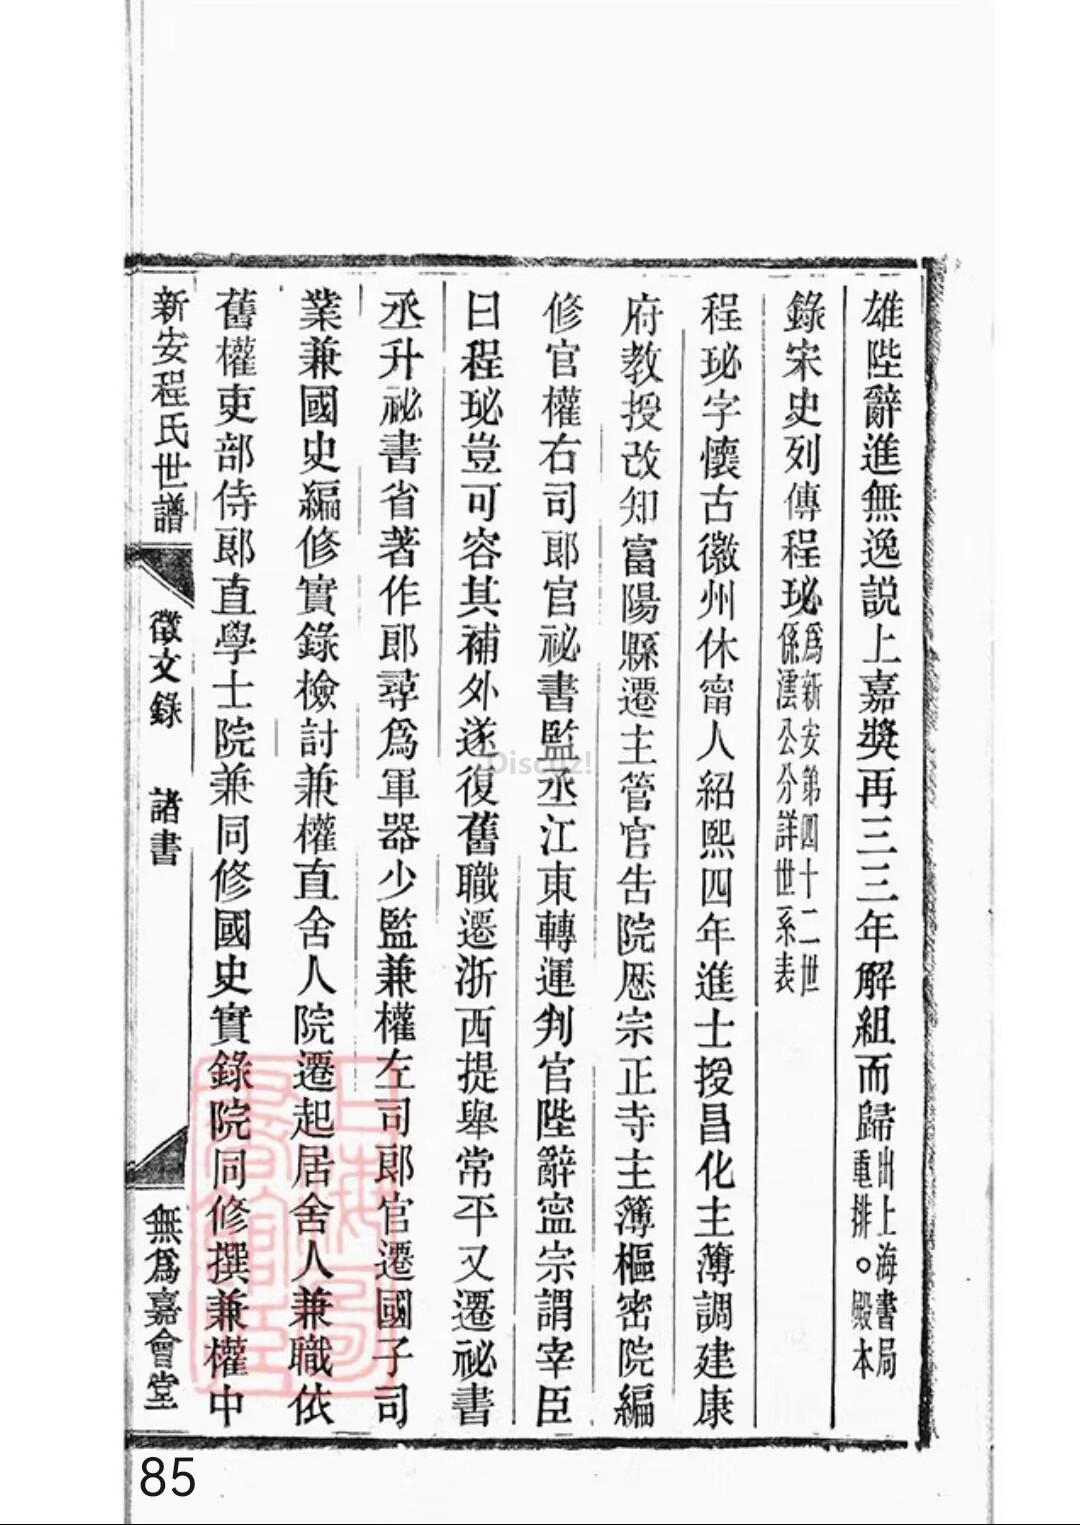 雄陛辭進無逸説上嘉獎再三三年解組而歸出上海書局重排。殿本
錄宋史列傳程珌為新安第四十二世係澐公分詳世系表
程珌字懷古徽州休甯人紹熙四年進士授昌化主簿調建康
府教授改知富陽縣遷主管官告院歷宗正寺主簿樞密院編
修官權右司郎官祕書監丞江東轉運判官陛辭寍宗謂宰臣
曰程珌豈可容其補外遂復舊職遷浙西提舉常平又遷祕書
丞升祕書省著作郎尋為軍器少監兼權左司郎官遷國子司
業兼國史編修實錄檢討兼權直舍人院遷起居舍人兼職依
舊權吏部侍郎直學士院兼同修國史實錄院同修撰兼權中
新安程氏世譜
徵文錄 諸書
無為嘉會堂
Discuz!
85